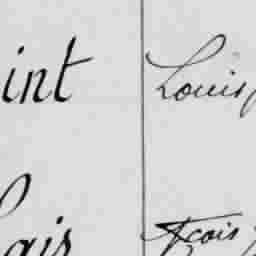 int Louis
ais fçois